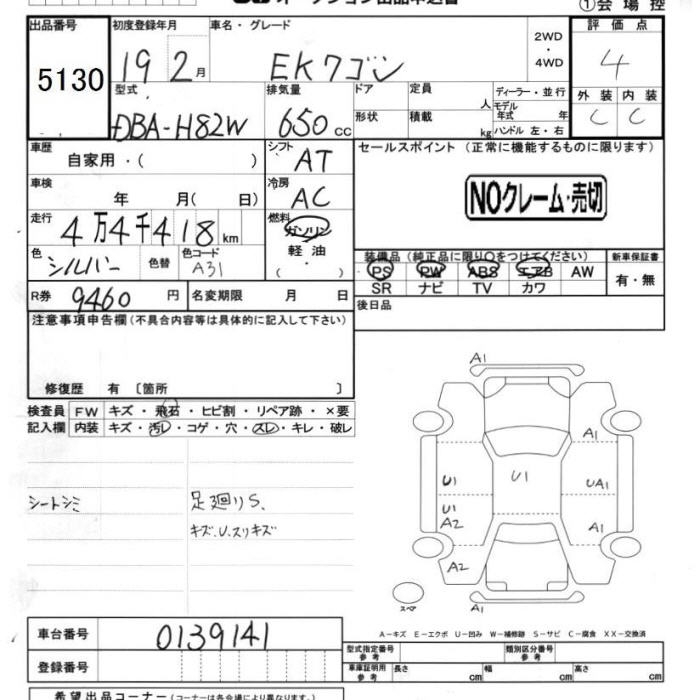 ①会場控
出品番号 初度登録年月 車名・グレード 2WD・4WD 評価点
5130 19年 2月 EKワゴン 4
型式 排気量 ドア 定員 人 ディーラー・並行 外装 内装
DBA-H82W 650cc 形状 積載 kg モデル年式 年 ハンドル 左・右 C C
車歴 シフト セールスポイント(正常に機能するものに限ります)
自家用・( ) AT
車検 年 月( 日) 冷房 AC NOクレーム・売切
走行 4万4千418km 燃料 ガソリン
軽油
( ・ )
色 シルバー 色替 色コード A31 装備品(純正品に限り○をつけてください) 新車保証書
PS PW ABS エアB AW 有・無
SR ナビ TV カワ
R券 9460円 名変期限 月 日 後日品
注意事項申告欄(不具合内容等は具体的に記入して下さい)
修復歴 有〔箇所 〕
検査員 FW キズ・飛石・ヒビ割・リペア跡・×要
記入欄 内装 キズ・汚レ・コゲ・穴・スレ・キレ・破レ
A1
A1
U1 U1 UA1
シートシミ 足廻りS.
U1
A2 A1
キズ.U.スリキズ
A2
スペア A1
A-キズ E-エクボ U-凹み W-補修跡 S-サビ C-腐食 XX-交換済
車台番号 0139141
型式指定番号 参考 類別区分番号 参考
登録番号 車庫証明用 参考 長さ cm 幅 cm 高さ cm
希望出品コーナー(コーナーは各会場により異なります。)